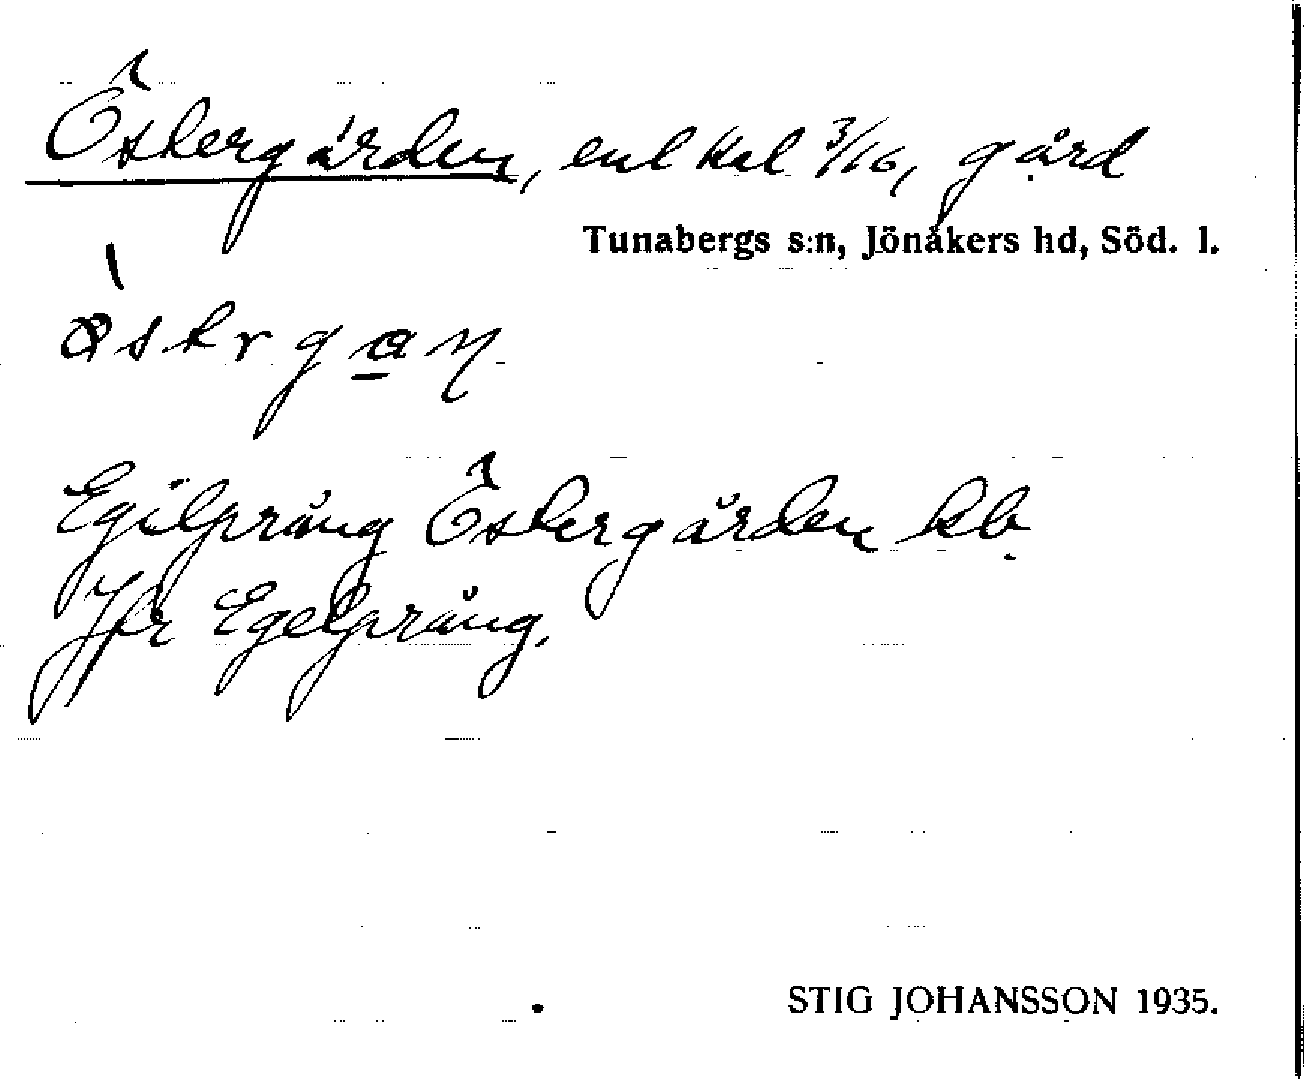 Östergården, enl kal 3/16, gård
Tunabergs s:n, Jönåkers hd, Söd. l.
Egilprång Östergården kb
Jfr Egelprång.
STIG JOHANSSON 1935.